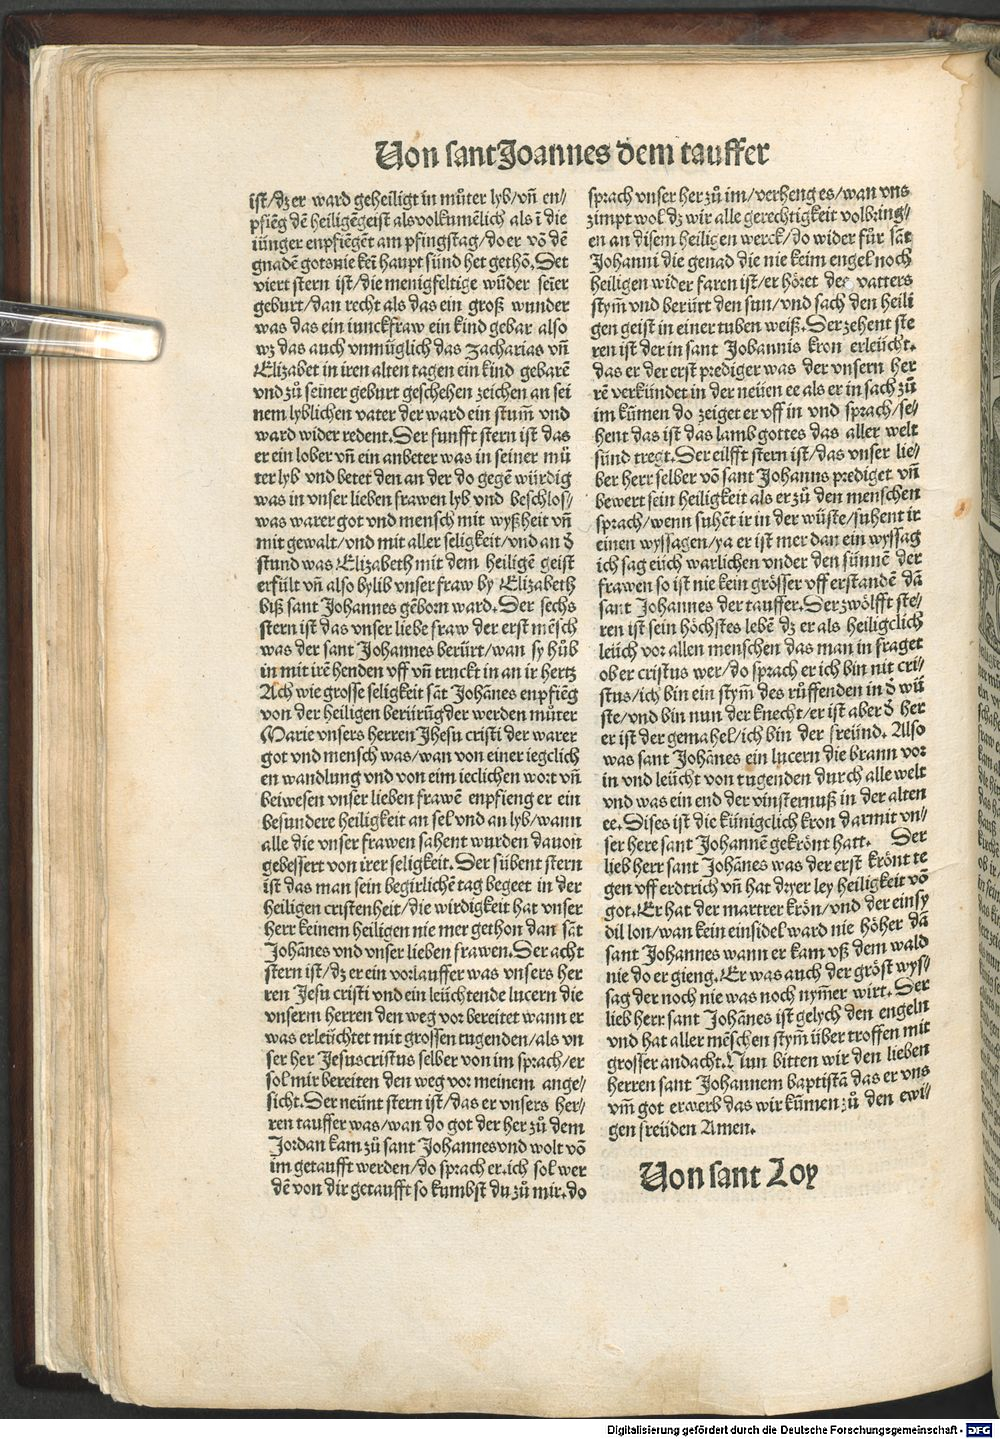 Von sant Joannes dem tauffer
ist/dz er ward geheiligt in můter lyb/vn̄ en/
pfiēg dē heiligēgeist als volkumēlich als ī die
iünger enpfiēgēt am pfingstag/do er vō dē
gnadē gots nie kei haupt sünd het gethō. Der
viert stern ist/die menigfeltige wūder seīer
geburt/dan recht als das ein groß wunder
was das ein iunckfraw ein kind gebar also
wz das auch vnmüglich das Zacharias vn̄
Elizabet in iren alten tagen ein kind gebarē
vnd zů seiner geburt geschehen zeichen an sei
nem lyblichen vater der ward ein stum̄ vnd
ward wider redent. Der funfft stern ist das
er ein lober vn̄ ein anbeter was in seiner mů
ter lyb vnd betet den an der do gegē würdig
was in vnser lieben frawen lyb vnd beschlos/
was warer got vnd mensch mit wyßheit vn̄
mit gewalt/vnd mit aller seligkeit/vnd an d̄
stund was Elizabeth mit dem heiligē geist
erfült vn̄ also bylib vnser fraw by Elizabeth
biß sant Johannes gēborn ward. Der sechs
stern ist das vnser liebe fraw der erst mēsch
was der sant Johannes berürt/wan sy hůb
in mit irē henden vff vn̄ truckt in an ir hertz
Ach wie grosse seligkeit sāt Johānes enpfiēg
von der heiligen berürūg der werden můter
Marie vnsers herren Jhesu cristi der warer
got vnd mensch was/wan von einer iegclich
en wandlung vnd von eim ieclichen wort vn̄
beiwesen vnser lieben frawē enpfieng er ein
besundere heiligkeit an sel vnd an lyb/wann
alle die vnser frawen sahent wurden dauon
gebessert von irer seligkeit. Der sübent stern
ist das man sein begirlichē tag begeet in der
heiligen cristenheit/die wirdigkeit hat vnser
herr keinem heiligen nie mer gethon dan sāt
Johānes vnd vnser lieben frawen. Der acht
stern ist/dz er ein vorlauffer was vnsers her
ren Jesu cristi vnd ein leüchtende lucern die
vnserm herren den weg vor bereitet wann er
was erleüchtet mit grossen tugenden/als vn
ser her Jesus cristus selber von im sprach/er
sol mir bereiten den weg vor meinem ange/
sicht. Der neünt stern ist/das er vnsers her/
ren tauffer was/wan do got der her zů dem
Jordan kam zů sant Johannes vnd wolt vō
im getaufft werden/do sprach er. ich sol wer
dē von dir getaufft so kumbst du zů mir. do
sprach vnser her zů im/verheng es/wan vns
zimpt wol dz wir alle gerechtigkeit volbring/
en an disem heiligen werck/do wider für sāt
Johanni die genad die nie keim engel noch
heiligen wider faren ist/er höret des vatters
stym̄ vnd berürt den sun/vnd sach den heili
gen geist in einer tuben weiß. Der zehent ste
ren ist der in sant Johannis kron erleücht.
das er der erst prediger was der vnsern her
rē verkündet in der neüen ee als er in sach zů
im kūmen do zeiget er vff in vnd sprach/se/
hent das ist das lamb gottes das aller welt
sünd tregt. Der eilfft stern ist/das vnser lie/
ber herr selber vō sant Johanns prediget vn̄
bewert sein heiligkeit als er zů den menschen
sprach/wenn suhēt ir in der wüste/suhent ir
einen wyssagen/ya er ist mer dan ein wyssag
ich sag eüch warlichen vnder den sünnē der
frawen so ist nie kein grösser vff erstandē dā
sant Johannes der tauffer. Der zwölfft ste/
ren ist sein höchstes lebē dz er als heiligclich
leüch vor allen menschen das man in fraget
ob er cristus wer/do sprach er ich bin nit cri/
stus/ich bin ein stym̄ des růffenden in d̄ wü
ste/vnd bin nun der knecht/er ist aber d̄ her
er ist der gemahel/ich bin der freünd. Also
was sant Johānes ein lucern die brann vor
in vnd leücht von tugenden durch alle welt
vnd was ein end der vinsternuß in der alten
ee. Dises ist die künigclich kron darmit vn/
ser here sant Johannē gekrönt hatt. Der
lieb herr sant Johānes was der erst krönt te
gen vff erdtrich vn̄ hat dryer ley heiligkeit vō
got. Er hat der martrer krōn/vnd der einsy
dil lon/wan kein einsidel ward nie höher dā
sant Johannes wann er kam vß dem wald
nie do er gieng. Er was auch der gröst wys/
sag der noch nie was noch nym̄er wirt. Der
lieb herr sant Johānes ist gelych den engeln
vnd hat aller mēschen stym̄ über troffen mit
grosser andacht. Nun bitten wir den lieben
herren sant Johannem baptistā das er vns
vm̄ got erwerb das wir kūmen zů den ewi/
gen freüden Amen.
Von sant Loy
Digitalisierung gefördert durch die Deutsche Forschungsgemeinschaft - DFG